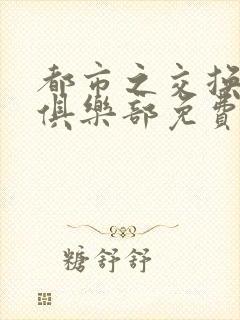 都市之交换
俱樂部免費
糖舒舒